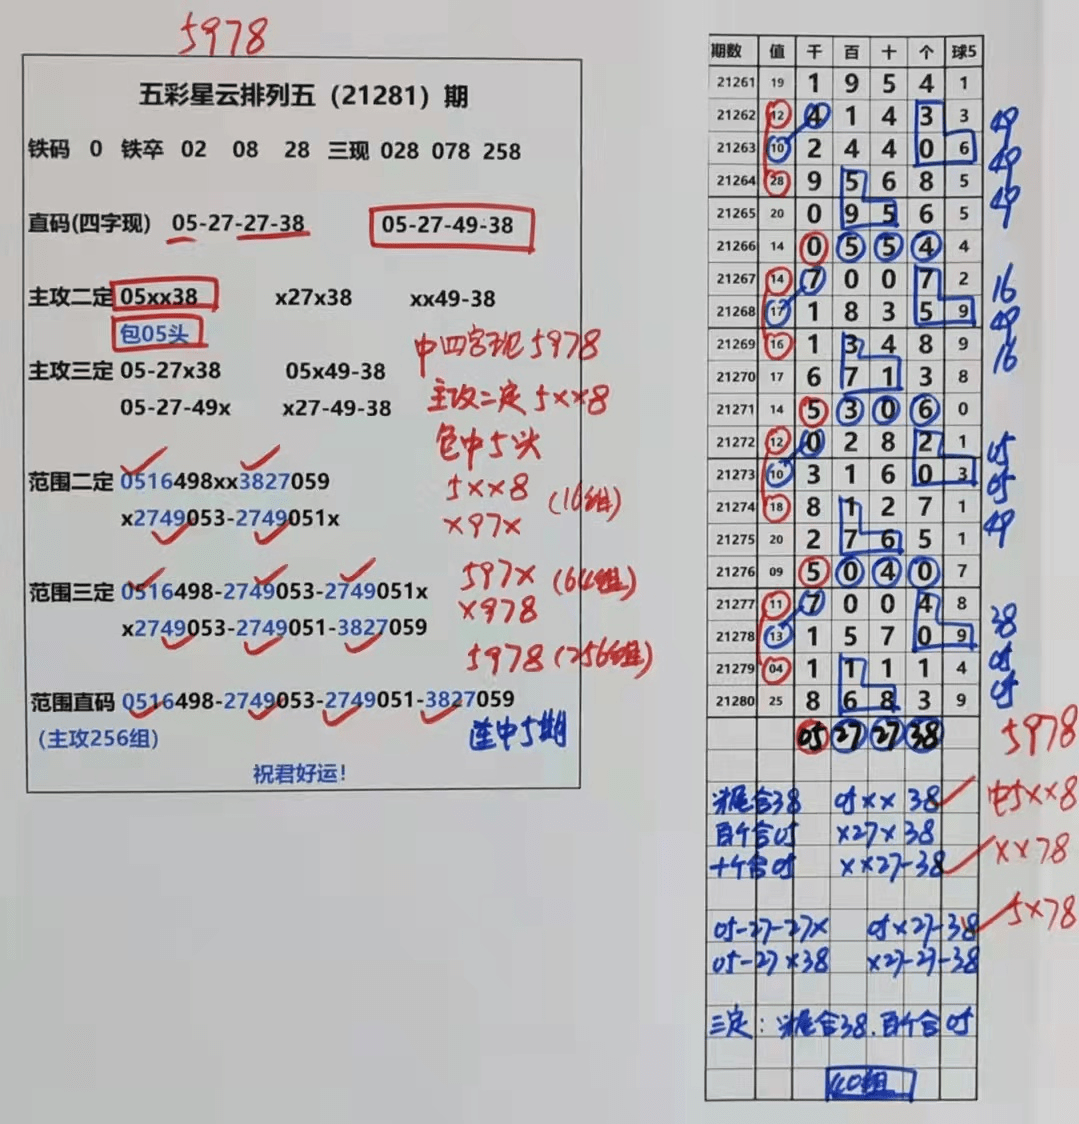 5978
五彩星云排列五（21281）期
铁码 0 铁卒 02 08 28 三现 028 078 258
直码(四字现) 05-27-27-38 05-27-49-38
主攻二定 05xx38 x27x38 xx49-38
包05头
主攻三定 05-27x38 05x49-38
05-27-49x x27-49-38
中四字现5978
主攻二定5xx8
包中5头
范围二定 0516498xx3827059
x2749053-2749051x
5xx8 (16组)
x97x
范围三定 0516498-2749053-2749051x
x2749053-2749051-3827059
597x (64组)
x978
5978 (256组)
范围直码 0516498-2749053-2749051-3827059
(主攻256组)
连中5期
祝君好运!
期数 值 千 百 十 个 球5
21261 19 1 9 5 4 1
21262 12 4 1 4 3 3 49
21263 10 2 4 4 0 6 49
21264 28 9 5 6 8 5 49
21265 20 0 9 5 6 5
21266 14 0 5 5 4 4
21267 14 7 0 0 7 2 16
21268 17 1 8 3 5 9 49
21269 16 1 3 4 8 9 16
21270 17 6 7 1 3 8
21271 14 5 3 0 6 0
21272 12 0 2 8 2 1 05
21273 10 3 1 6 0 3 05
21274 18 8 1 2 7 1 49
21275 20 2 7 6 5 1
21276 09 5 0 4 0 7
21277 11 7 0 0 4 8 38
21278 13 1 5 7 0 9 05
21279 04 1 1 1 1 4 05
21280 25 8 6 8 3 9
05 27 27 38 5978
尾合38 05xx38 中5xx8
百个合05 x27x38
十个合05 xx27-38 xx78
05-27-27x 05x27-38 5x78
05-27x38 x27-27-38
三定：尾合38.百个合05
40组